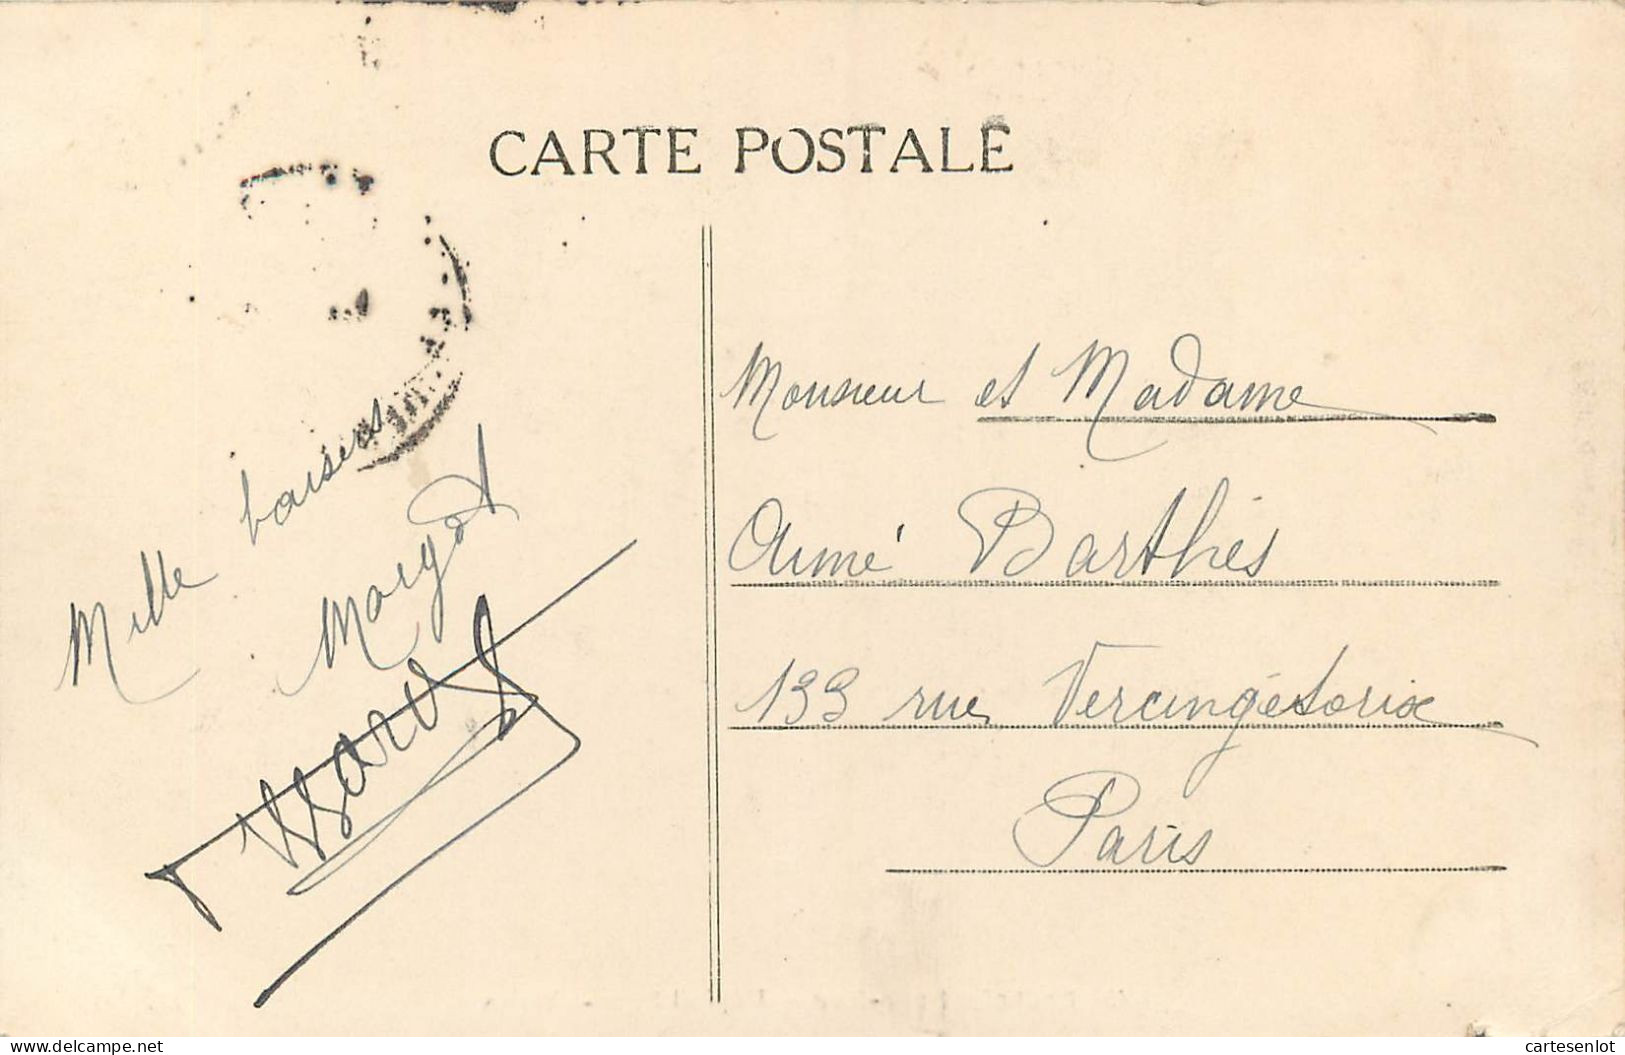 CARTE POSTALE
Mille baisers
Margot
Monsieur et Madame
Aimé Barthés
133 rue Vercingétorix
Paris
www.delcampe.net
cartesenlot